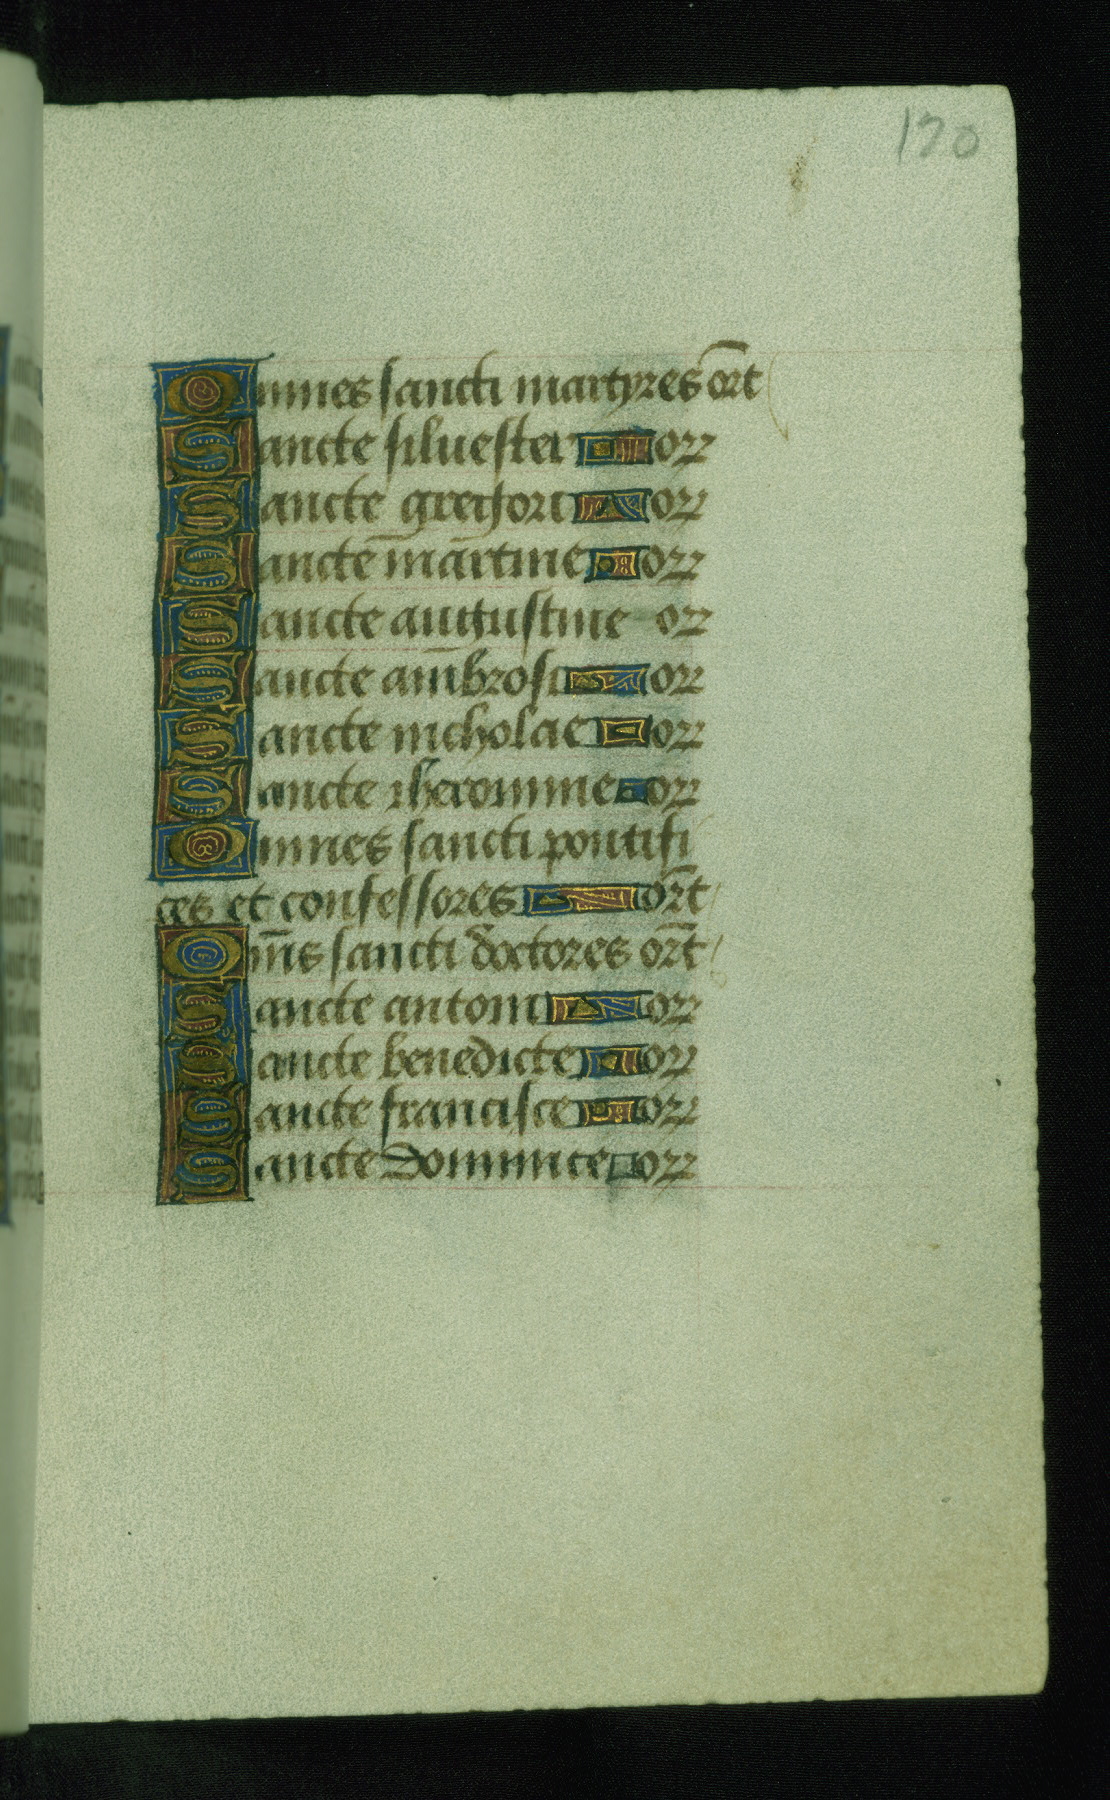 120
Omnes sancti martyres or̄t
Sancte siluester orr
Sancte gregori orr
Sancte martine orr
Sancte augustine or
Sancte ambrosi orr
Sancte nicholae orr
Sancte iheronime orr
Omnes sancti pontifi
ces et confessores or̄t
Om̄s sancti doctores or̄t
Sancte antoni orr
Sancte benedicte orr
Sancte francisce orr
Sancte dominice orr